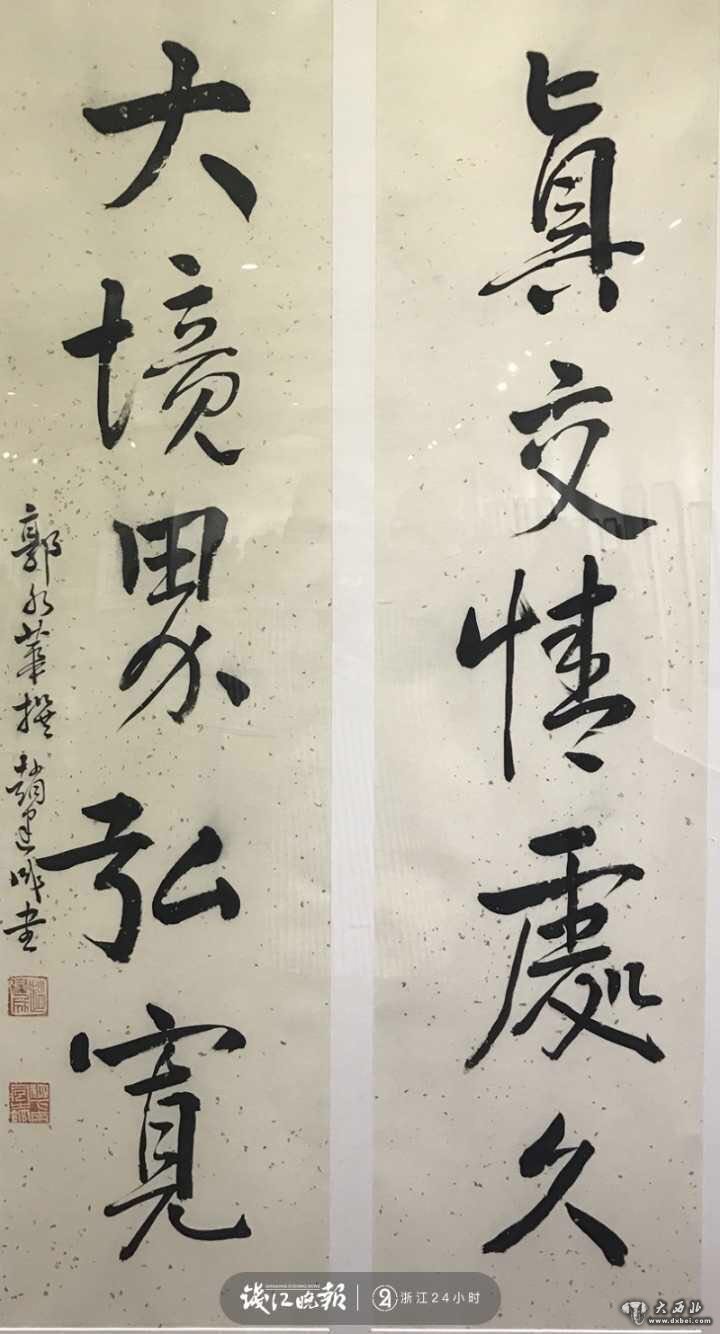 真交情處久
大境界弘寬
郭永華撰趙建成書
錢江晚報
浙江24小时
大西北
www.dxbei.com